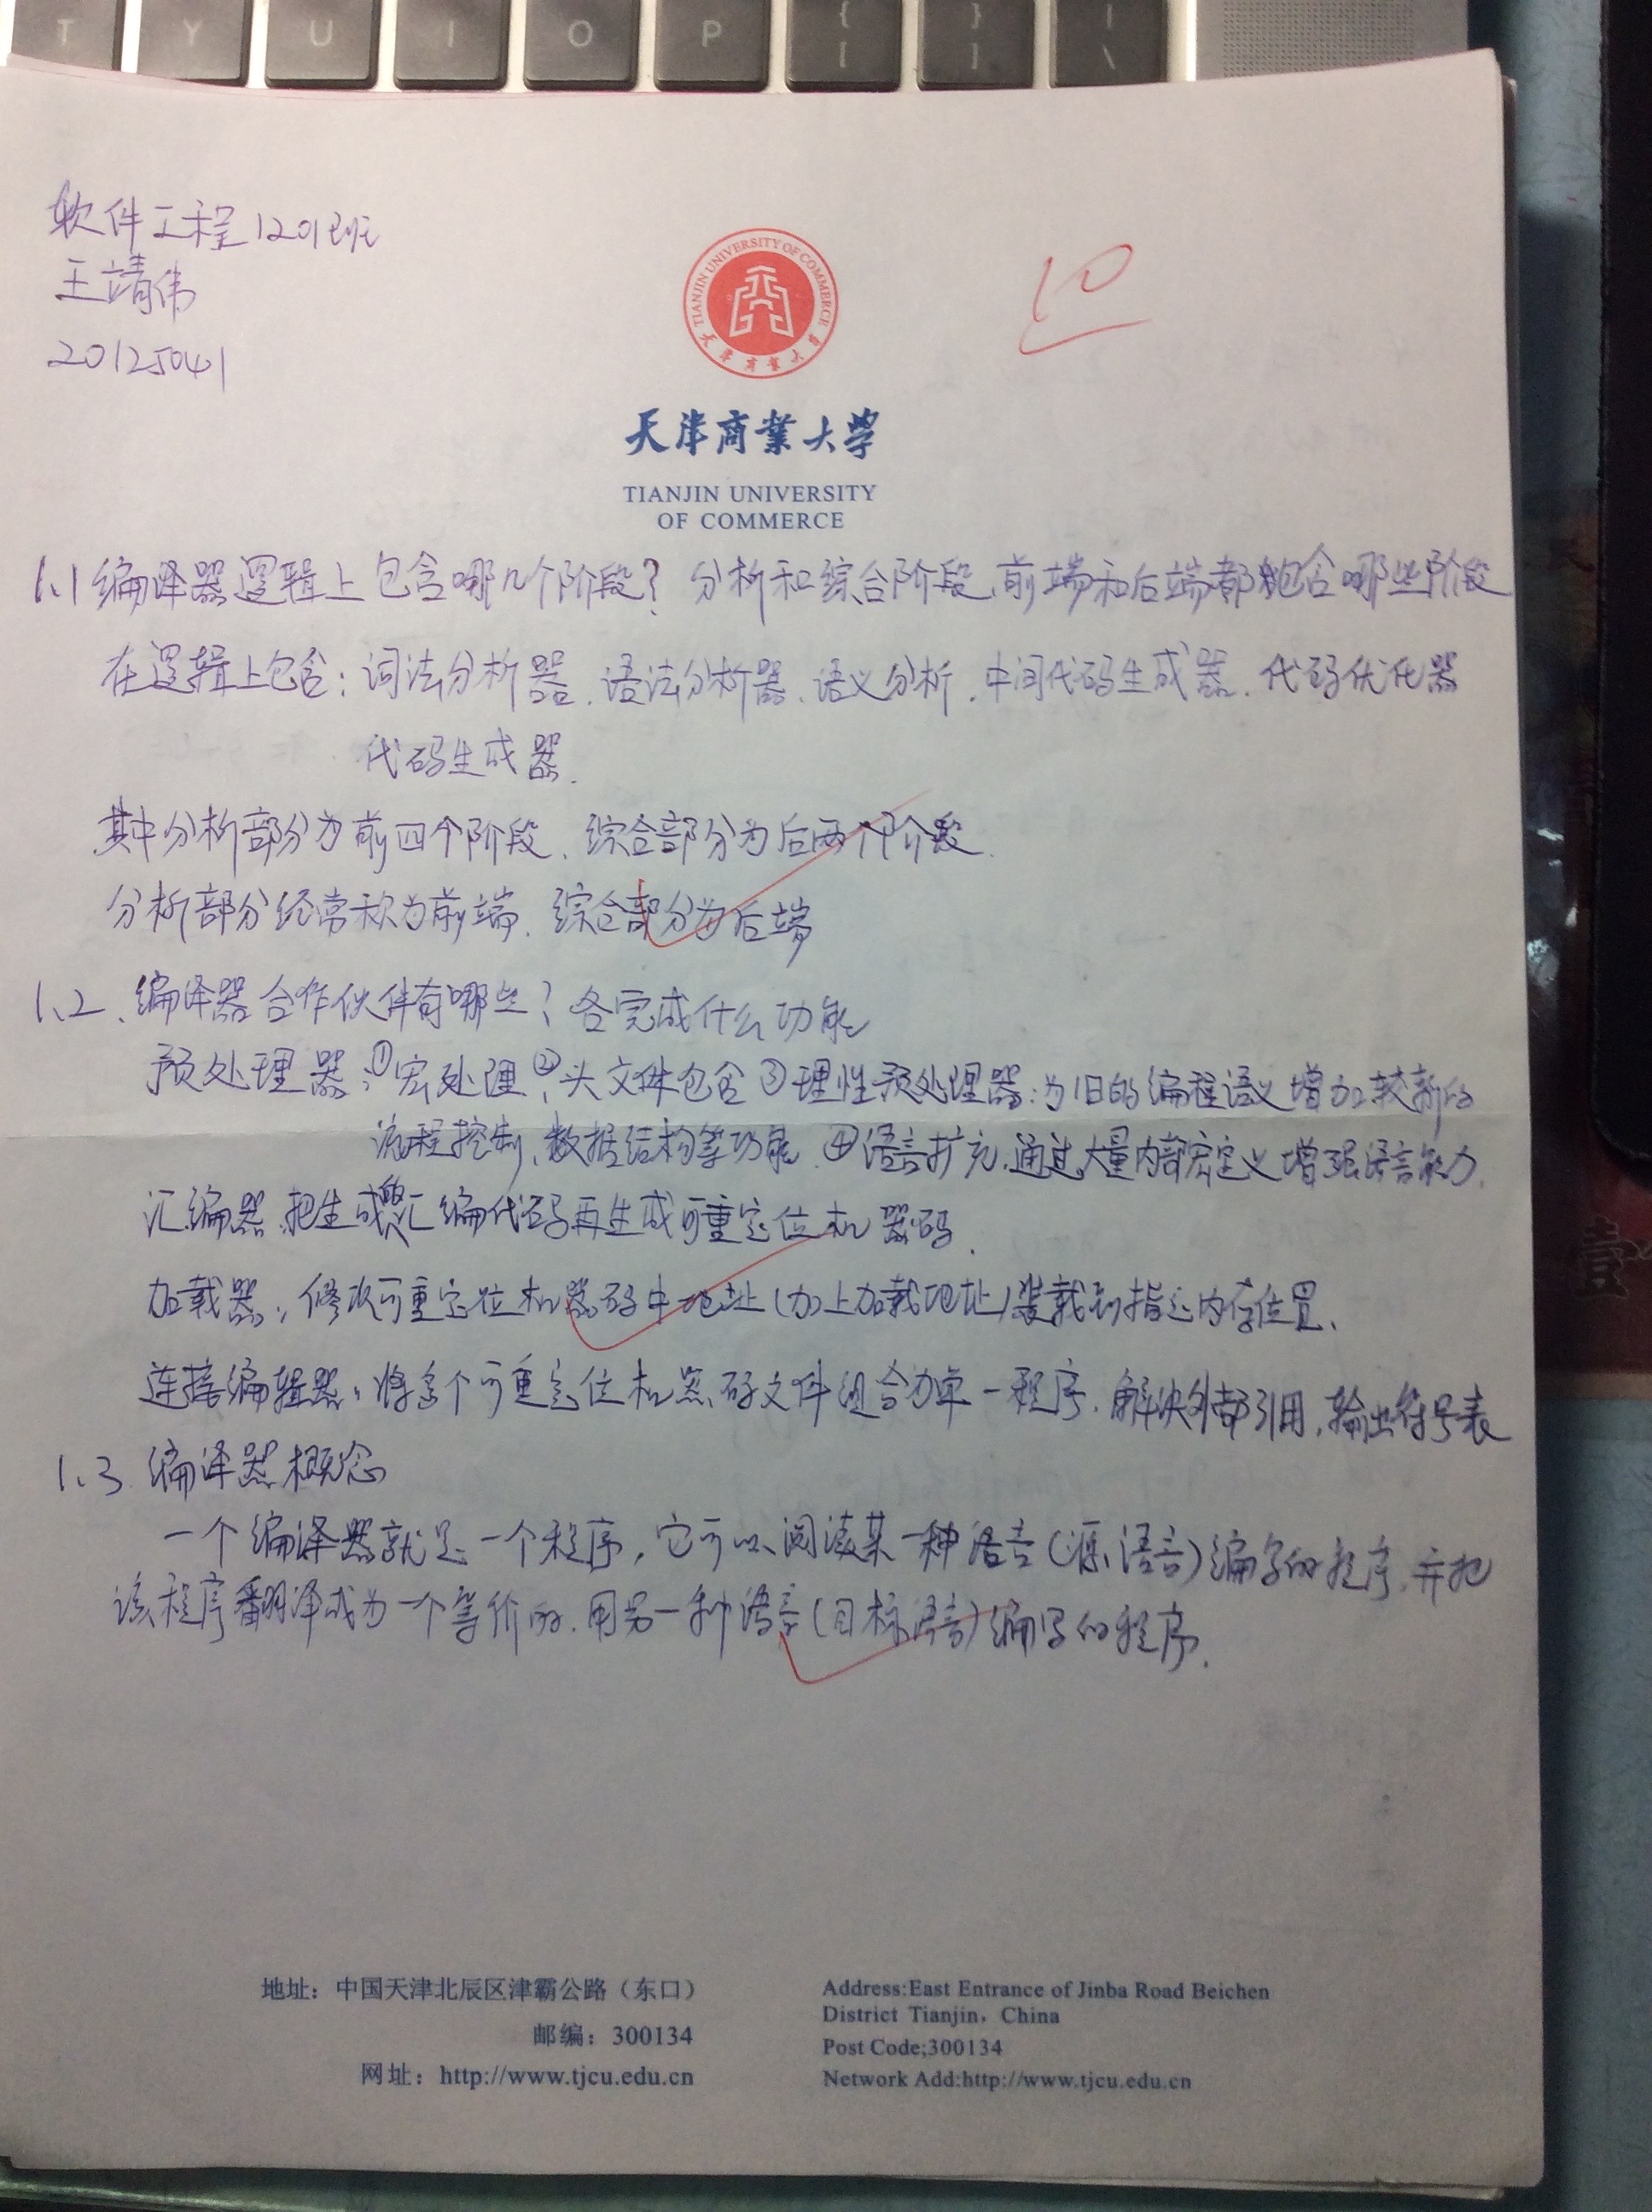 T Y U I O P { [ } ] | \
软件工程1201班
王靖伟
20125041
10
TIANJIN UNIVERSITY OF COMMERCE
天津商业大学
天津商業大學
TIANJIN UNIVERSITY
OF COMMERCE
1.1 编译器逻辑上包含哪几个阶段? 分析和综合阶段,前端和后端都包含哪些阶段
在逻辑上包含:词法分析器、语法分析器、语义分析、中间代码生成器、代码优化器
代码生成器.
其中分析部分为前四个阶段、综合部分为后两个阶段.
分析部分经常称为前端、综合部分为后端
1.2、编译器合作伙伴有哪些? 各完成什么功能
预处理器:①宏处理②头文件包含③理性预处理器:为旧的编程语义增加较新的
流程控制、数据结构等功能.④语言扩充,通过大量内部宏定义增强语言能力.
汇编器,把生成的汇编代码再生成可重定位机器码.
加载器:修改可重定位机器码中地址(加上加载地址)装载到指定内存位置.
连接编辑器:将多个可重定位机器码文件组合为单一程序.解决外部引用,输出符号表
1.3 编译器概念
一个编译器就是一个程序,它可以阅读某一种语言(源语言)编写的程序,并把
该程序翻译成为一个等价的.用另一种语言(目标语言)编写的程序.
地址:中国天津北辰区津霸公路(东口)
邮编:300134
网址:http://www.tjcu.edu.cn
Address:East Entrance of Jinba Road Beichen
District Tianjin, China
Post Code;300134
Network Add:http://www.tjcu.edu.cn